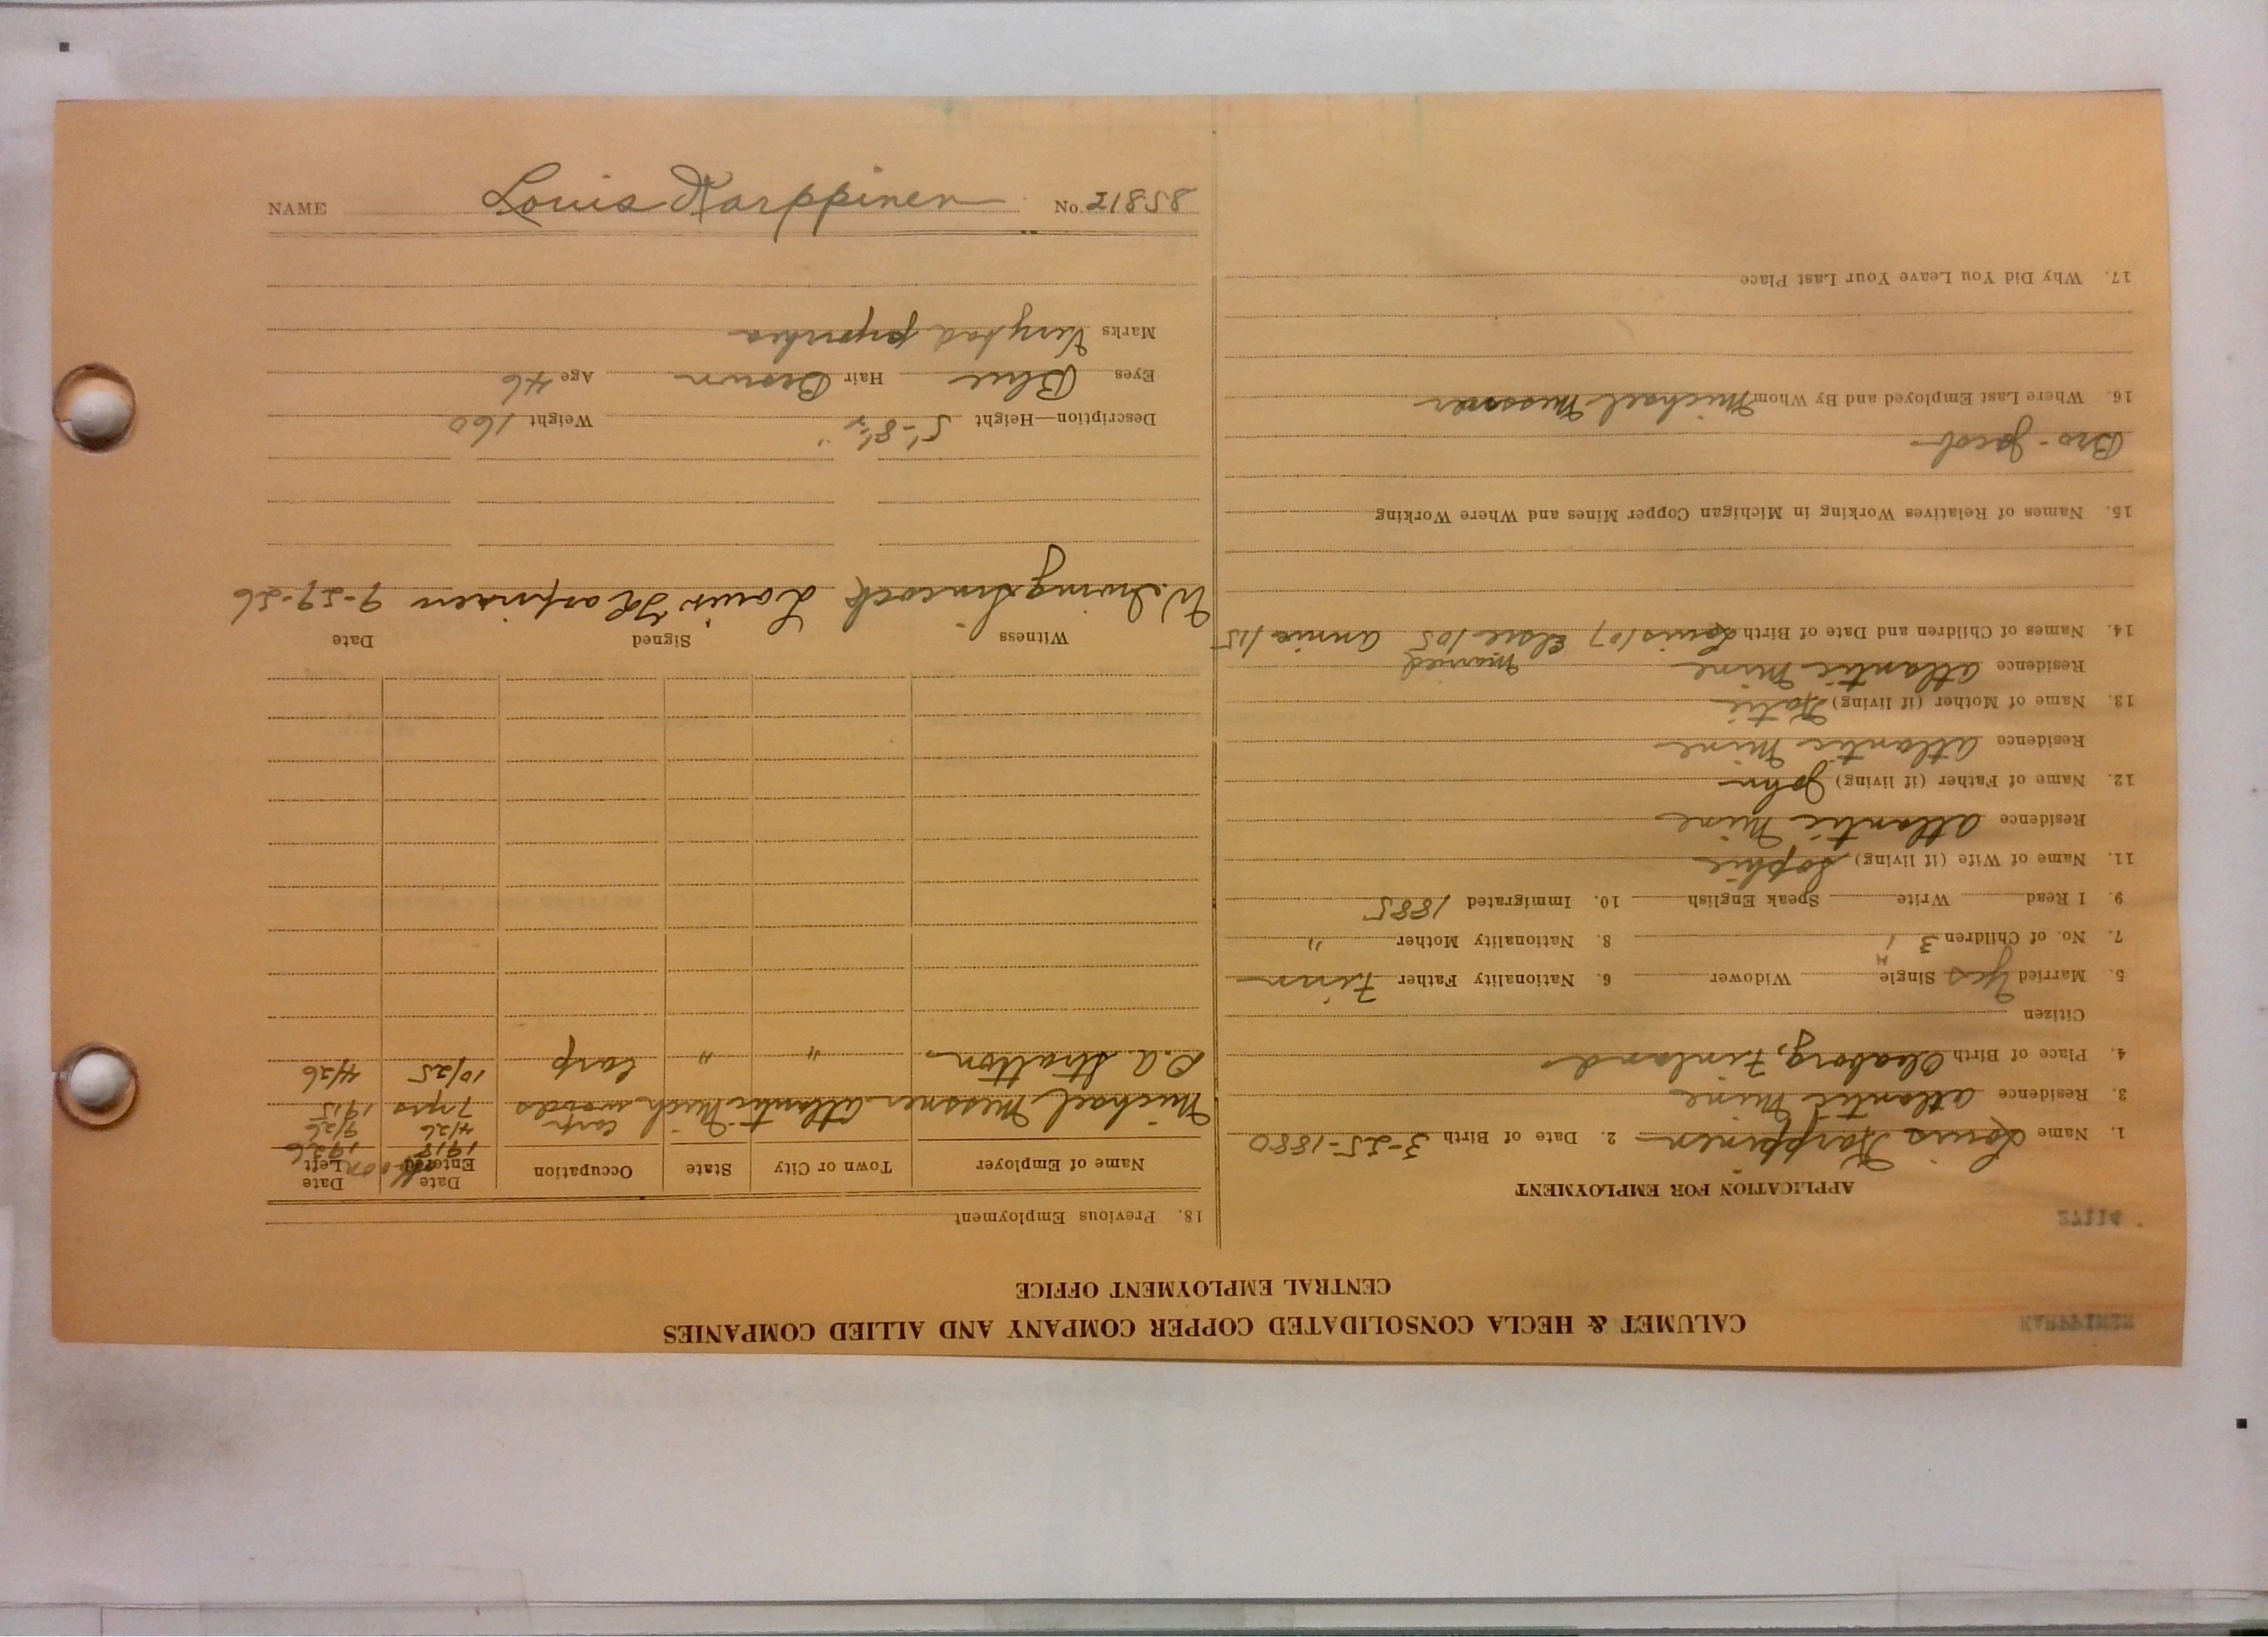 KARPPINEN
CALUMET & HECLA CONSOLIDATED COPPER COMPANY AND ALLIED COMPANIES
CENTRAL EMPLOYMENT OFFICE
27114
APPLICATION FOR EMPLOYMENT
1. Name Louis Karppinen 2. Date of Birth 3-25-1880
3. Residence Atlantic Mine
4. Place of Birth Oleaborg, Finland
Citizen
5. Married Yes Single Widower 6. Nationality Father Finn
7. No. of Children 3 8. Nationality Mother "
9. I Read Write Speak English 10. Immigrated 1885
11. Name of Wife (if living) Sophie
Residence Atlantic Mine
12. Name of Father (if living) John
Residence Atlantic Mine
13. Name of Mother (if living) Katie
Residence Atlantic Mine
married
14. Names of Children and Date of Birth Louis/07 Elsie/05 Annie/15
15. Names of Relatives Working in Michigan Copper Mines and Where Working
Bro - Jacob
16. Where Last Employed and By Whom Michael Messner
17. Why Did You Leave Your Last Place
18. Previous Employment
Name of Employer Town or City State Occupation Date Entered Date Left
1918 1926
carp 4/26 9/26
Michael Messner Atlantic Mich woods 7 yrs 1915
C.A. Stratton " " Carp 10/25 4/26
Witness Signed Date
Louis Karppinen 9-29-26
Description—Height 5'-8½" Weight 160
Eyes Blue Hair Brown Age 46
Marks Very bad pyorrhea
NAME Louis Karppinen No. 21858